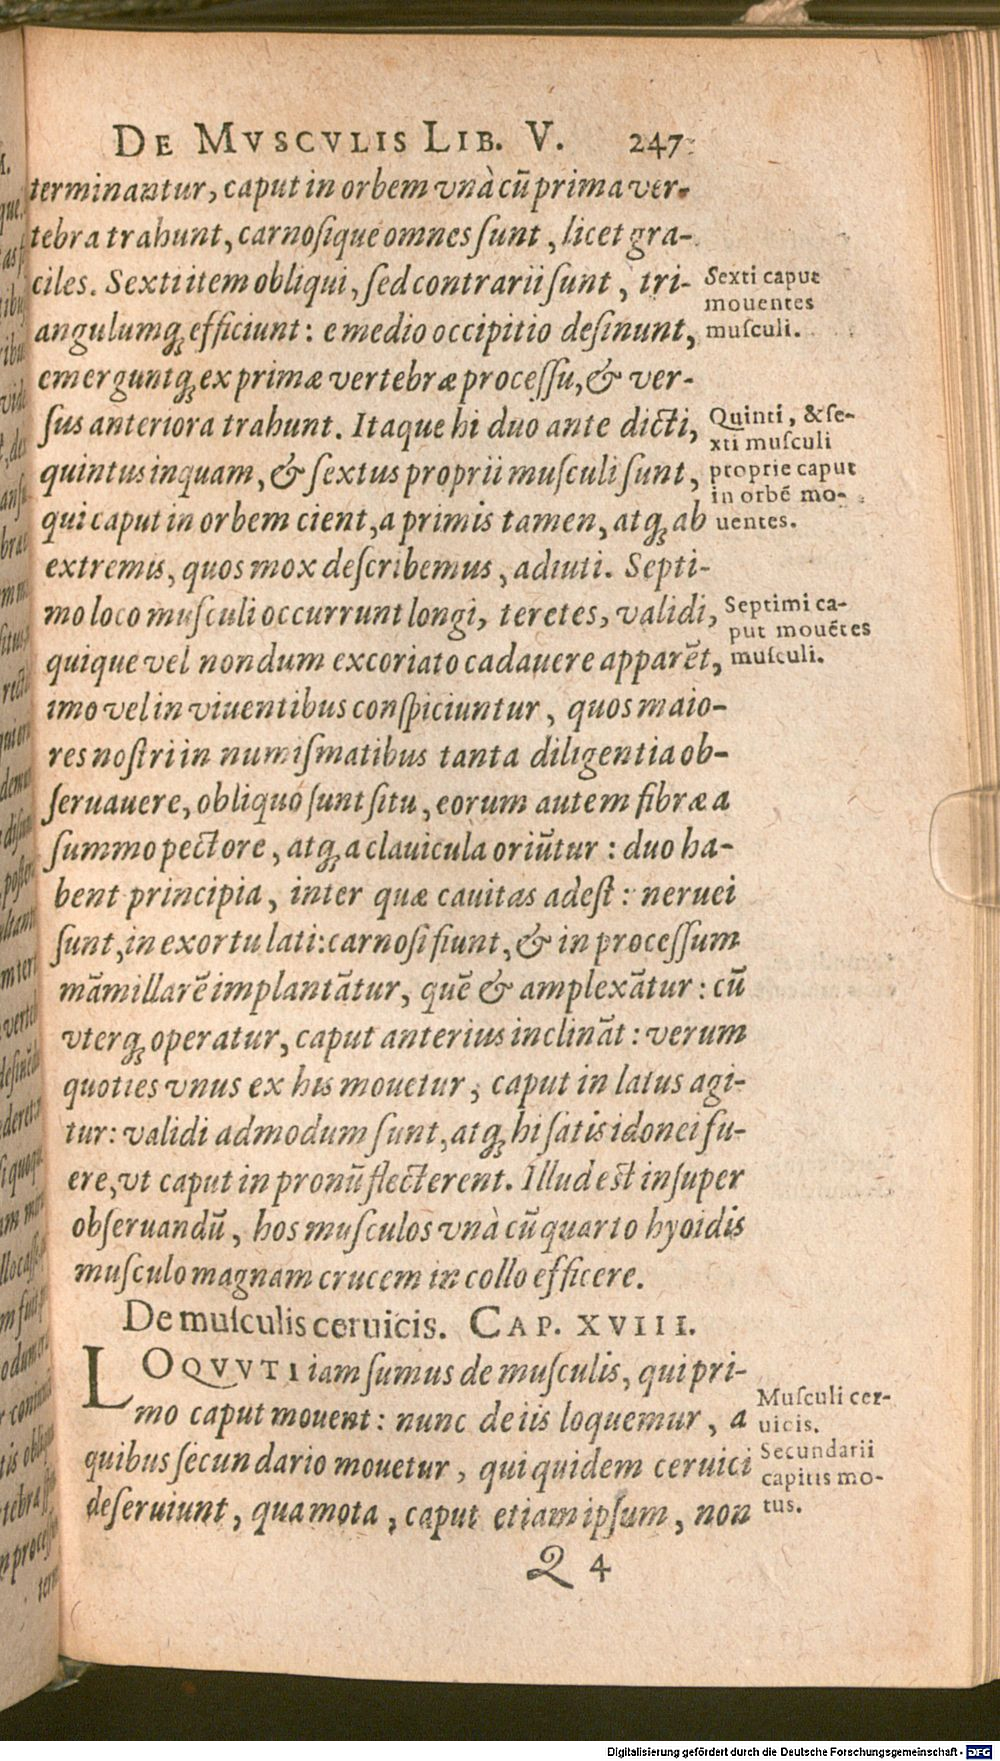 DE MVSCVLIS LIB. V. 247
terminantur, caput in orbem vnà cū prima ver-
tebra trahunt, carnosíque omnes sunt, licet gra-
ciles. Sexti item obliqui, sed contrarii sunt, tri-
angulumq; efficiunt: e medio occipitio desinunt,
emerguntq; ex primæ vertebræ processu, & ver-
sus anteriora trahunt. Itaque hi duo ante dicti,
quintus inquam, & sextus proprii musculi sunt,
qui caput in orbem cient, a primis tamen, atq; ab
extremis, quos mox describemus, adiuti. Septi-
mo loco musculi occurrunt longi, teretes, validi,
quique vel nondum excoriato cadauere apparēt,
imo vel in viuentibus conspiciuntur, quos maio-
res nostri in numismatibus tanta diligentia ob-
seruauere, obliquo sunt situ, eorum autem fibræ a
summo pectore, atq; a clauicula oriūtur: duo ha-
bent principia, inter quæ cauitas adest: neruei
sunt, in exortu lati: carnosi fiunt, & in processum
māmillarē implantātur, quē & amplexātur: cū
vterq; operatur, caput anterius inclināt: verum
quoties vnus ex his mouetur, caput in latus agi-
tur: validi admodum sunt, atq; hi satis idonei fu-
ere, vt caput in pronū flecterent. Illud est insuper
obseruandū, hos musculos vnà cū quarto hyoidis
musculo magnam crucem in collo efficere.
Sexti caput
mouentes
musculi.
Quinti, & se-
xti musculi
proprie caput
in orbē mo-
uentes.
Septimi ca-
put mouētes
musculi.
De musculis ceruicis. CAP. XVIII.
LOQVVTI iam sumus de musculis, qui pri-
mo caput mouent: nunc de iis loquemur, a
quibus secundario mouetur, qui quidem ceruici
deseruiunt, qua mota, caput etiam ipsum, non
Musculi cer-
uicis.
Secundarii
capitis mo-
tus.
Q 4
Digitalisierung gefördert durch die Deutsche Forschungsgemeinschaft - DFG